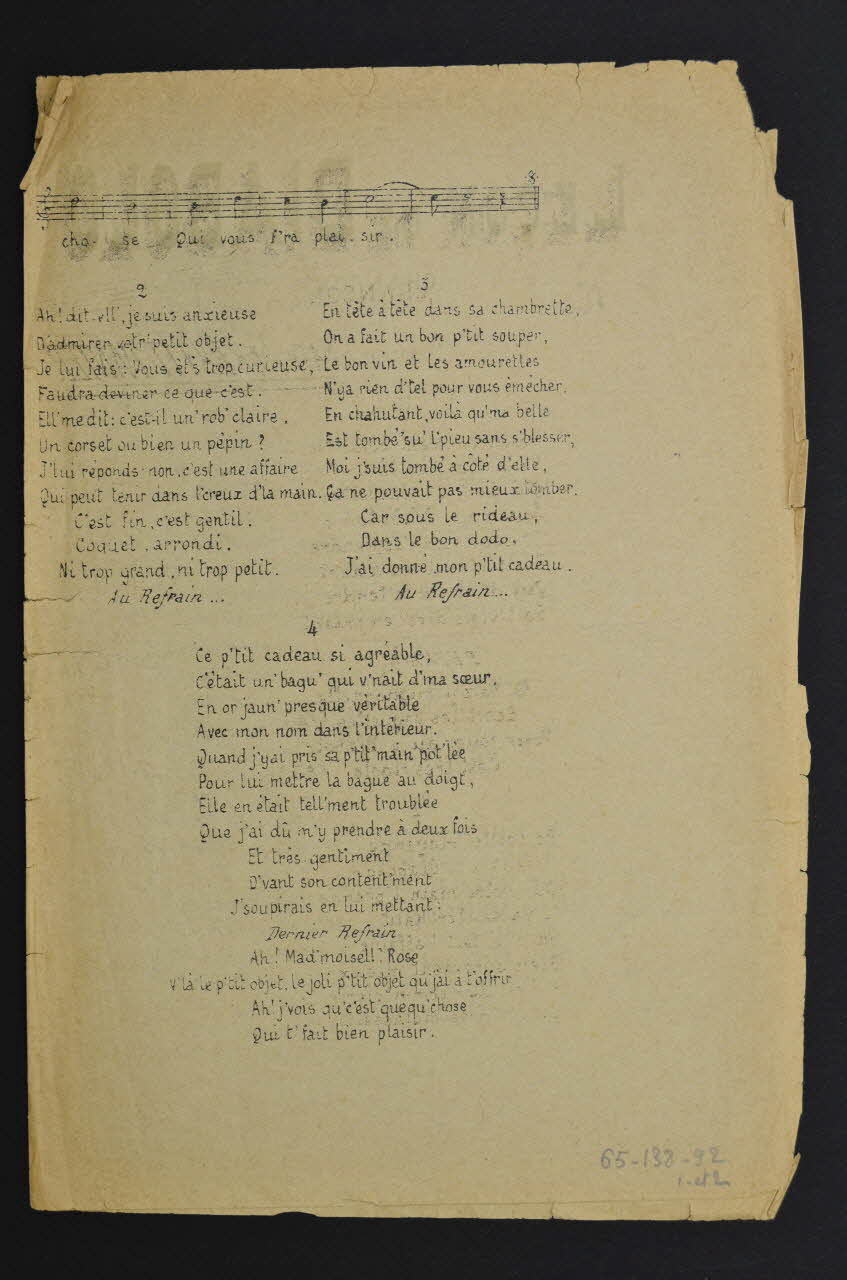 cho- se Qui vous f'ra plai- sir.
2
Ah! dit-ell', je suis anxieuse
D'admirer votr' petit objet.
Je lui fais: Vous êt's trop curieuse,
Faudra deviner ce que c'est.
Ell' me dit: c'est-il un' rob' claire,
Un corset ou bien un pépin?
J'lui réponds non, c'est une affaire
Qui peut tenir dans l'creux d'la main.
C'est fin, c'est gentil.
Coquet, arrondi.
Ni trop grand, ni trop petit.
Au Refrain...
3
En tête à tête dans sa chambrette,
On a fait un bon p'tit souper,
Le bon vin et les amourettes
N'ya rien d'tel pour vous émécher.
En chahutant, voilà qu'ma belle
Est tombé' su' l'pieu sans s'blesser,
Moi j'suis tombé à côté d'elle,
Ça ne pouvait pas mieux tomber.
Car sous le rideau,
Dans le bon dodo,
J'ai donné mon p'tit cadeau.
Au Refrain...
4
Ce p'tit cadeau si agréable,
C'était un' bagu' qui v'nait d'ma sœur,
En or jaun' presque véritable
Avec mon nom dans l'intérieur.
Quand j'y ai pris sa p'tit' main pot'lée
Pour lui mettre la bague au doigt,
Elle en était tell'ment troublée
Que j'ai dû m'y prendre à deux fois
Et très gentiment
D'vant son content'ment
J'soupirais en lui mettant:
Dernier Refrain
Ah! Mad'moisell' Rose
V'là le p'tit objet, le joli p'tit objet qu'j'ai à t'offrir
Ah! j'vois qu'c'est quéqu'chose
Qui t'fait bien plaisir.
65-138-92
1-et 2